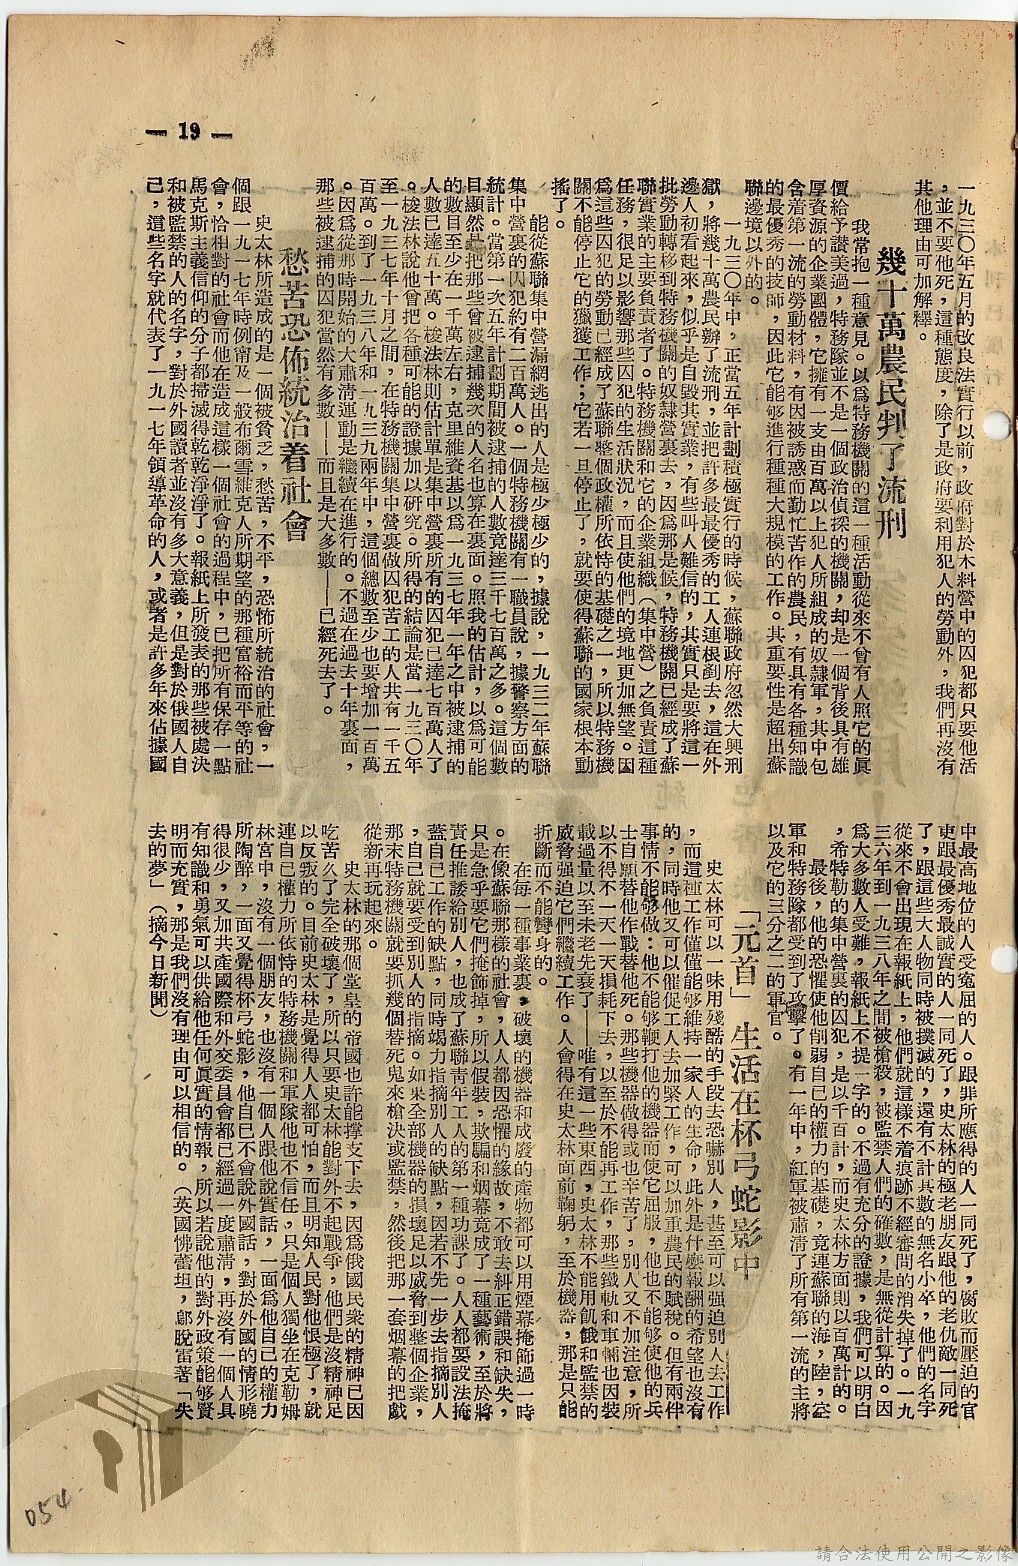 — 19 —
一九三〇年五月的改良法實行以前，政府對於木料營中的囚犯都只要他活
，並不要他死，這種態度，除了是政府要利用犯人的勞動外，我們再沒有
其他理由可加解釋。
幾十萬農民判了流刑
我常抱一種意見。以爲特務機關的這一種活動從來不曾有人照它的眞
價給予讚美過，特務隊並不是一個政治偵探的機關，却是一個背後具有雄
厚資源的企業團體，它擁有一支由百萬以上犯人所組成的奴隸軍，其中包
含着第一流的勞動材料，有因被誘惑而勤忙苦作的農民，有具有各種知識
的最優秀的技師，因此它能够進行種種大規模的工作。其重要性是超出蘇
聯邊境以外的。
一九三〇年中，正當五年計劃積極實行的時候，蘇聯政府忽然大興刑
獄，將幾十萬農民辦了流刑，並把許多最最優秀的工人連根剷去，這在外
邊人初看起來，似乎是自毀其實業，有些叫人難信的，其實只是要將這一
批勞動轉移到特務機關的奴隸營裏去，因爲那是候，特務機關已經成了蘇
聯實業的主要負責者了。特務機關和它的企業組織（集中營）之負責這種
任務，很足以影響那些囚犯的生活狀況，而且使他們的境地更加無望。因
爲這些囚犯的勞動已經成了蘇聯整個政權所依恃的基礎之一，所以特務機
關不能停止它的獵獲工作；它若一旦停止了，就要使得蘇聯的國家根本動
搖了。
能從蘇聯集中營漏網逃出的人是極少極少的，據說，一九三二年蘇聯
集中營裏的囚犯約有二百萬人。一個特務機關有一職員說，據警察方面的
統計。當第一次五年計劃期間被逮捕的人數竟達三千七百萬之多。這個數
目顯然是把那些曾被逮捕幾次的人名也算在裏面。照我的估計，以爲可能
的數目至少在一千萬左右，克里維資基以爲一九三七年一年之中被逮捕的
人數已達五十萬。梭法林則估計單是集中營裏所有的囚犯已達七百萬人了
。梭法林說他曾把各種可能的證據加以研究。所得的結論是當一九三〇年
至一九三七年十月之間，在特務機關集中營裏做囚犯苦工的人共有一千五
百萬。到了一九三八年和一九三九兩年中，這個總數至少也要增加一百萬
。因爲從那時開始的大肅清運動是繼續在進行的。不過在過去十年裏面，
那些被逮捕的囚犯當然有多數——而且是大多數——已經死去了。
愁苦恐佈統治着社會
史太林所造成的是一個被貧乏，愁苦，不平，恐怖所統治的社會，一
個跟一九一七年時例甯及一般布爾雪維克人所期望的那種富裕而平等的社
會，恰相對的社會而他在造成這樣一個社會的過程中，已把所有保存一點
馬克斯主義信仰的分子都掃滅得乾乾淨淨了。報紙上所發表的那些被處決
和被監禁的人的名字，對於外國讀者並沒有多大意義，但是對於俄國人自
己，這些名字就代表了一九一七年領導革命的人，或者是許多年來佔據國
中最高地位的人受寃屈的人。跟罪所應得的人一同死了，腐敗而壓迫的官
吏跟最優秀最誠實的人一同死了，史太林的極老朋友跟他的老仇敵一同死
了，跟這些大人物同時被撲滅的，還有不計其數的無名小卒，他們的名字
從來不會出現在報紙上，他們就這樣不着痕跡不經審問的消失掉了。一九
三六年到一九三八年之間被槍殺，被監禁人們的確數，是無從計算的。因
爲大多數人受難，報紙上不提一字的。不過有充分的證據，我們可以明白
，希特勒的集中營裏的囚犯，是以千百計，而史太林方面則以百萬計的。
最後，他的恐懼使他削弱自己的權力的基礎，竟連蘇聯的海，陸，空
軍和特務隊都受到了攻擊了。有一年中，紅軍被肅清了所有第一流的主將
以及它的三分之二的軍官。
「元首」生活在杯弓蛇影中
史太林可以一味用殘酷的手段去恐嚇別人，甚至可以强迫別人去工作
，而這種工作僅僅能够維持一家人的生命，此外是什麼報酬的希望也沒有
的，同時他又可以催促工人去加緊工作，可以加重農民的賦稅。但有兩件
事情不能够做：他不能够鞭打他的機器而使它屈服，他也不能够使他的兵
士自願替他作戰替他死。那些機器做得或也辛苦了，別人又不加注意，所
以不得不一天一天損耗下去，以至於不能再工作，那些鐵軌和車輛也因裝
載過量以至未老先衰了——唯有這一些東西，史太林不能用飢餓和監禁的
威脅强迫它們繼續工作。人會得在史太林面前鞠躬，至於機器，那是只能
折斷而不能彎身的。
在每一種事業裏，破壞的機器和成廢的產物都可以用煙幕掩飾過一時
。在像蘇聯那樣的社會，人人都因恐懼的緣故，不敢去糾正錯誤和缺失，
只是急乎要它們掩飾掉，所以假裝，欺騙和烟幕竟成了一種藝術，至於將
責任推諉給別人，也成了蘇聯靑年工人的第一種功課了。人人都要設法掩
蓋自己工作的缺點，同時竭力指摘別人的缺點，因若不先一步去指摘別人
，自己就要受到別人的指摘。如果全部機器的損壞足以威脅到整個企業，
那末特務機關就要抓幾個替死鬼來槍決或監禁，然後把那一套烟幕的把戲
從新再玩起來。
史太林的那個堂皇的帝國也許能撑支下去，因爲俄國民衆的精神已因
吃苦久了完全破壞了，所以只要史太林能對外不起戰爭，他們是沒精神足
以反叛的。目前史太林是覺得人人都可怕，而且明知人民對他恨極了，就
連自己權力所依恃的特務機關和軍隊他也不信任，只是個人獨坐在克勒姆
林宮中，沒有一個朋友，也沒有一個人跟他說實話，一面爲他自己的權力
所陶醉，一面又覺得杯弓蛇影，他自已不會說外國話，對於外國的情形曉
得很少，又加共產國際和外交委員會都已經過一度肅清，再沒有一個人具
有知識和勇氣可以供給他任何眞實的情報，所以若說他的對外政策能够賢
明而充實，那是我們沒有理由可以相信的。（英國怫蕾坦，鄔脫雷著「失
去的夢」（摘今日新聞）
054
請合法使用公開之影像